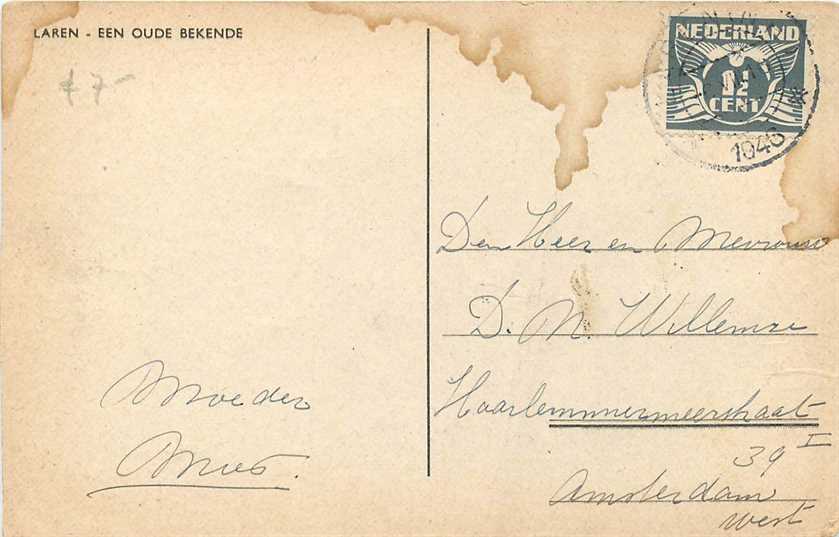 LAREN - EEN OUDE BEKENDE
NEDERLAND
1½
CENT
1946
7-
Den Heer en Mevrouw
D. N. Willemse
Haarlemmermeerstraat
39 I
Amsterdam
West
Moeder